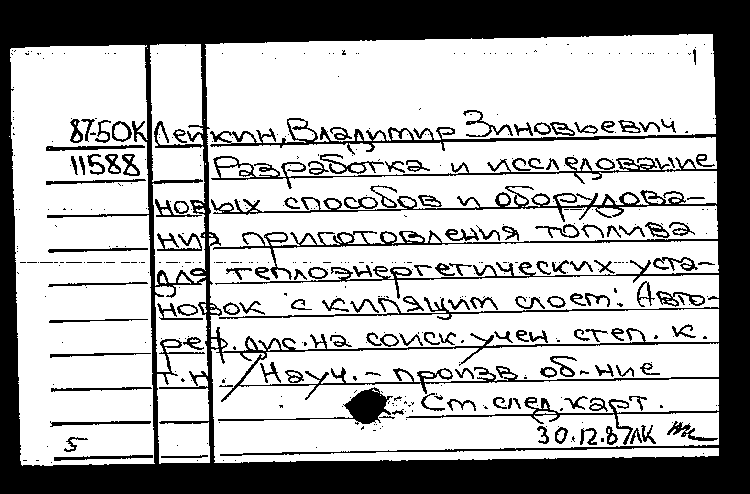 1
87-5ОК Лейкин, Владимир Зиновьевич.
11588 Разработка и исследование
новых способов и оборудова-
ния приготовления топлива
для теплоэнергетических уста-
новок с кипящим слоем: Авто-
реф. дис. на соиск. учен. степ. к.
т.н. / Науч.- произв. об-ние
Ст. след. карт.
5 30.12.87 ЛК